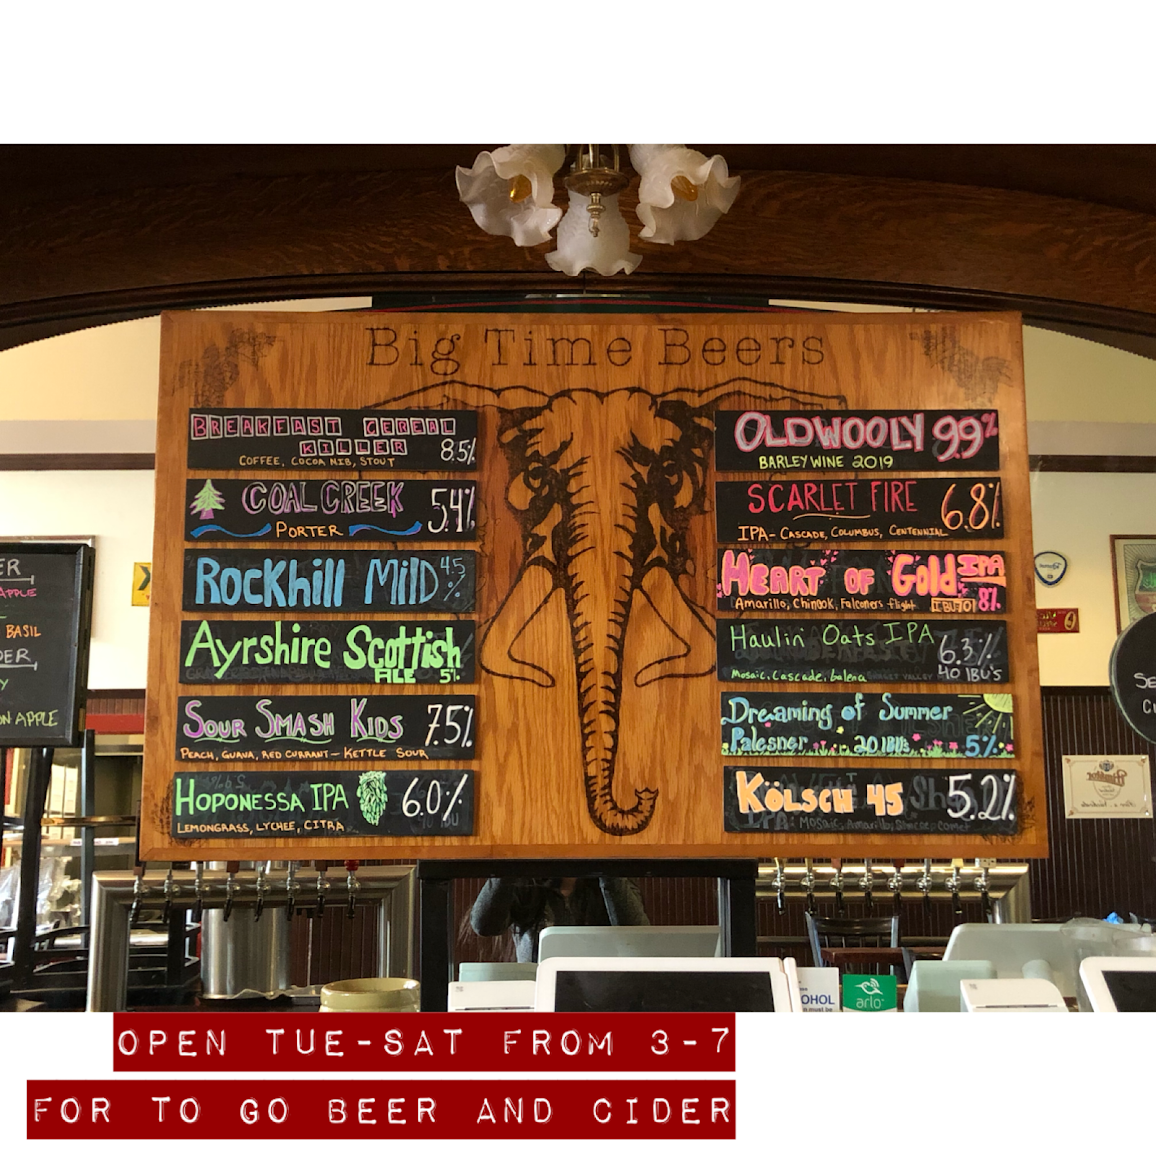 Big Time Beers
BREAKFAST CEREAL
KILLER
8.5%
COFFEE, COCOA NIB, STOUT
COAL CREEK
5.4%
PORTER
ROCKHILL MILD 4.5
%
Ayrshire Scottish
ALE 5%
SOUR SMASH KIDS 7.5%
PEACH, GUAVA, RED CURRANT - KETTLE SOUR
HOPONESSA IPA 6.0%
LEMONGRASS, LYCHEE, CITRA
OLDWOOLY 9.9%
BARLEY WINE 2019
SCARLET FIRE 6.8%
IPA - CASCADE, COLUMBUS, CENTENNIAL
HEART OF Gold IPA
Amarillo, Chinook, Falconers flight IBU 70 8%
Haulin' Oats IPA 6.3%
Mosaic, Cascade, 40 IBU'S
Dreaming of Summer
Palesner 20 IBUs 5%
KÖLSCH 45 5.2%
ER
APPLE
BASIL
DER
Y
ON APPLE
SE
C
OHOL
arlo
OPEN TUE-SAT FROM 3-7
FOR TO GO BEER AND CIDER